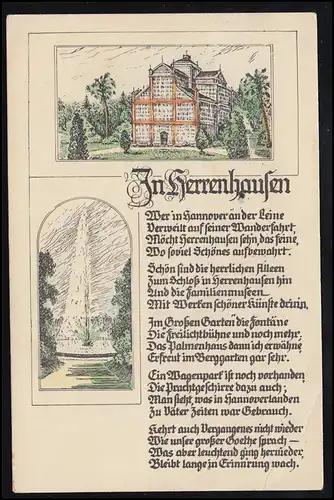 In Herrenhausen
Wer in Hannover an der Leine
Verweilt auf seiner Wanderfahrt,
Möcht Herrenhausen sehn, das feine,
Wo soviel Schönes aufbewahrt.
Schön sind die herrlichen Alleen
Zum Schloß in Herrenhausen hin
Und die Familienmuseen
Mit Werken schöner Künste drin.
Im Großen Garten die Fontäne
Die Freilichtbühne und noch mehr,
Das Palmenhaus dann ich erwähne,
Erfreut im Berggarten gar sehr.
Ein Wagenpark ist noch vorhanden,
Die Prachtgeschirre dazu auch;
Man sieht, was in Hannoverlanden
Zu Väter Zeiten war Gebrauch.
Kehrt auch Vergangenes nicht wieder
Wie unser großer Goethe sprach –
Was aber leuchtend ging hernieder,
Bleibt lange in Erinnrung wach.